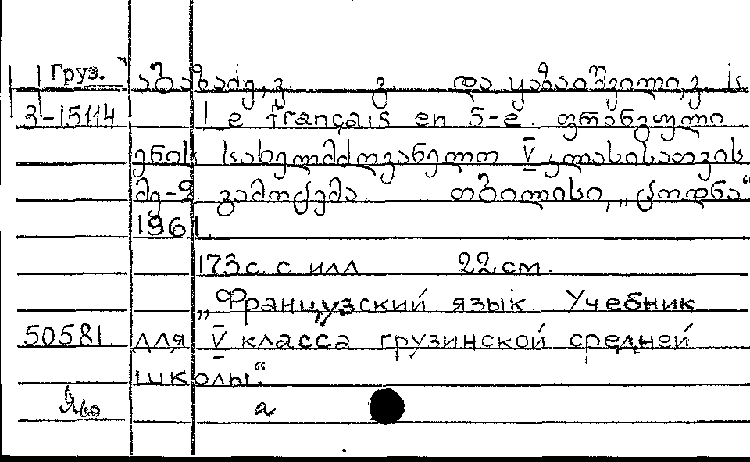 Груз. აბაზაძე, ვ. ვ. და ყაზაიშვილი, ვ. ს.
3-15114 Le français en 5-e. ფრანგული
ენის სახელმძღვანელო V კლასისათვის
მე-2 გამოცემა თბილისი, „ცოდნა“
1961.
173 с. с илл 22 см.
„Французский язык Учебник
50581 для V класса грузинской средней
школы.“
а